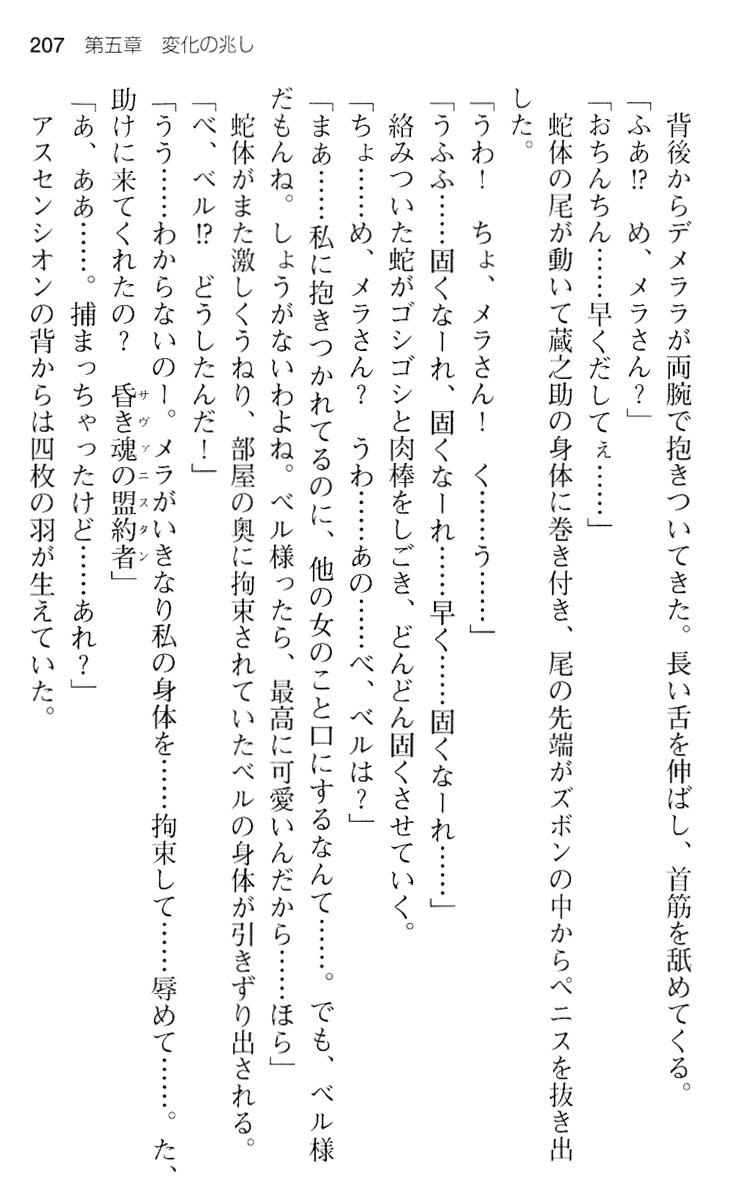 207 第五章 変化の兆し
背後からデメララが両腕で抱きついてきた。長い舌を伸ばし、首筋を舐めてくる。
「ふあ!? め、メラさん？」
「おちんちん……早くだしてぇ……」
蛇体の尾が動いて蔵之助の身体に巻き付き、尾の先端がズボンの中からペニスを抜き出
した。
「うわ！ ちょ、メラさん！ く……う……」
「うふふ……固くなーれ、固くなーれ……早く……固くなーれ……」
絡みついた蛇がゴシゴシと肉棒をしごき、どんどん固くさせていく。
「ちょ……め、メラさん？ うわ……あの……べ、ベルは？」
「まあ……私に抱きつかれてるのに、他の女のこと口にするなんて……。でも、ベル様
だもんね。しょうがないわよね。ベル様ったら、最高に可愛いんだから……ほら」
蛇体がまた激しくうねり、部屋の奥に拘束されていたベルの身体が引きずり出される。
「べ、ベル!? どうしたんだ！」
「うう……わからないのー。メラがいきなり私の身体を……拘束して……辱めて……。た、
助けに来てくれたの？ 昏き魂の盟約者」
サヴァニスタン
「あ、ああ……。捕まっちゃったけど……あれ？」
アスセンシオンの背からは四枚の羽が生えていた。